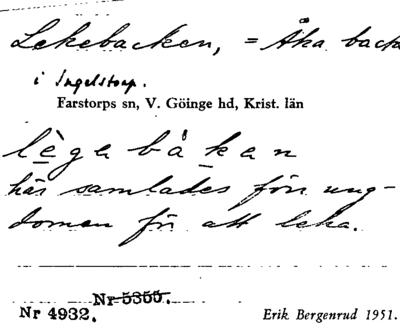 Lekebacken, = Åka back
i Ingelstorp.
Farstorps sn, V. Göinge hd, Krist. län
lèga båkan
här samlades förr ung-
domen för att leka.
Nr 5355.
Nr 4932.
Erik Bergenrud 1951.